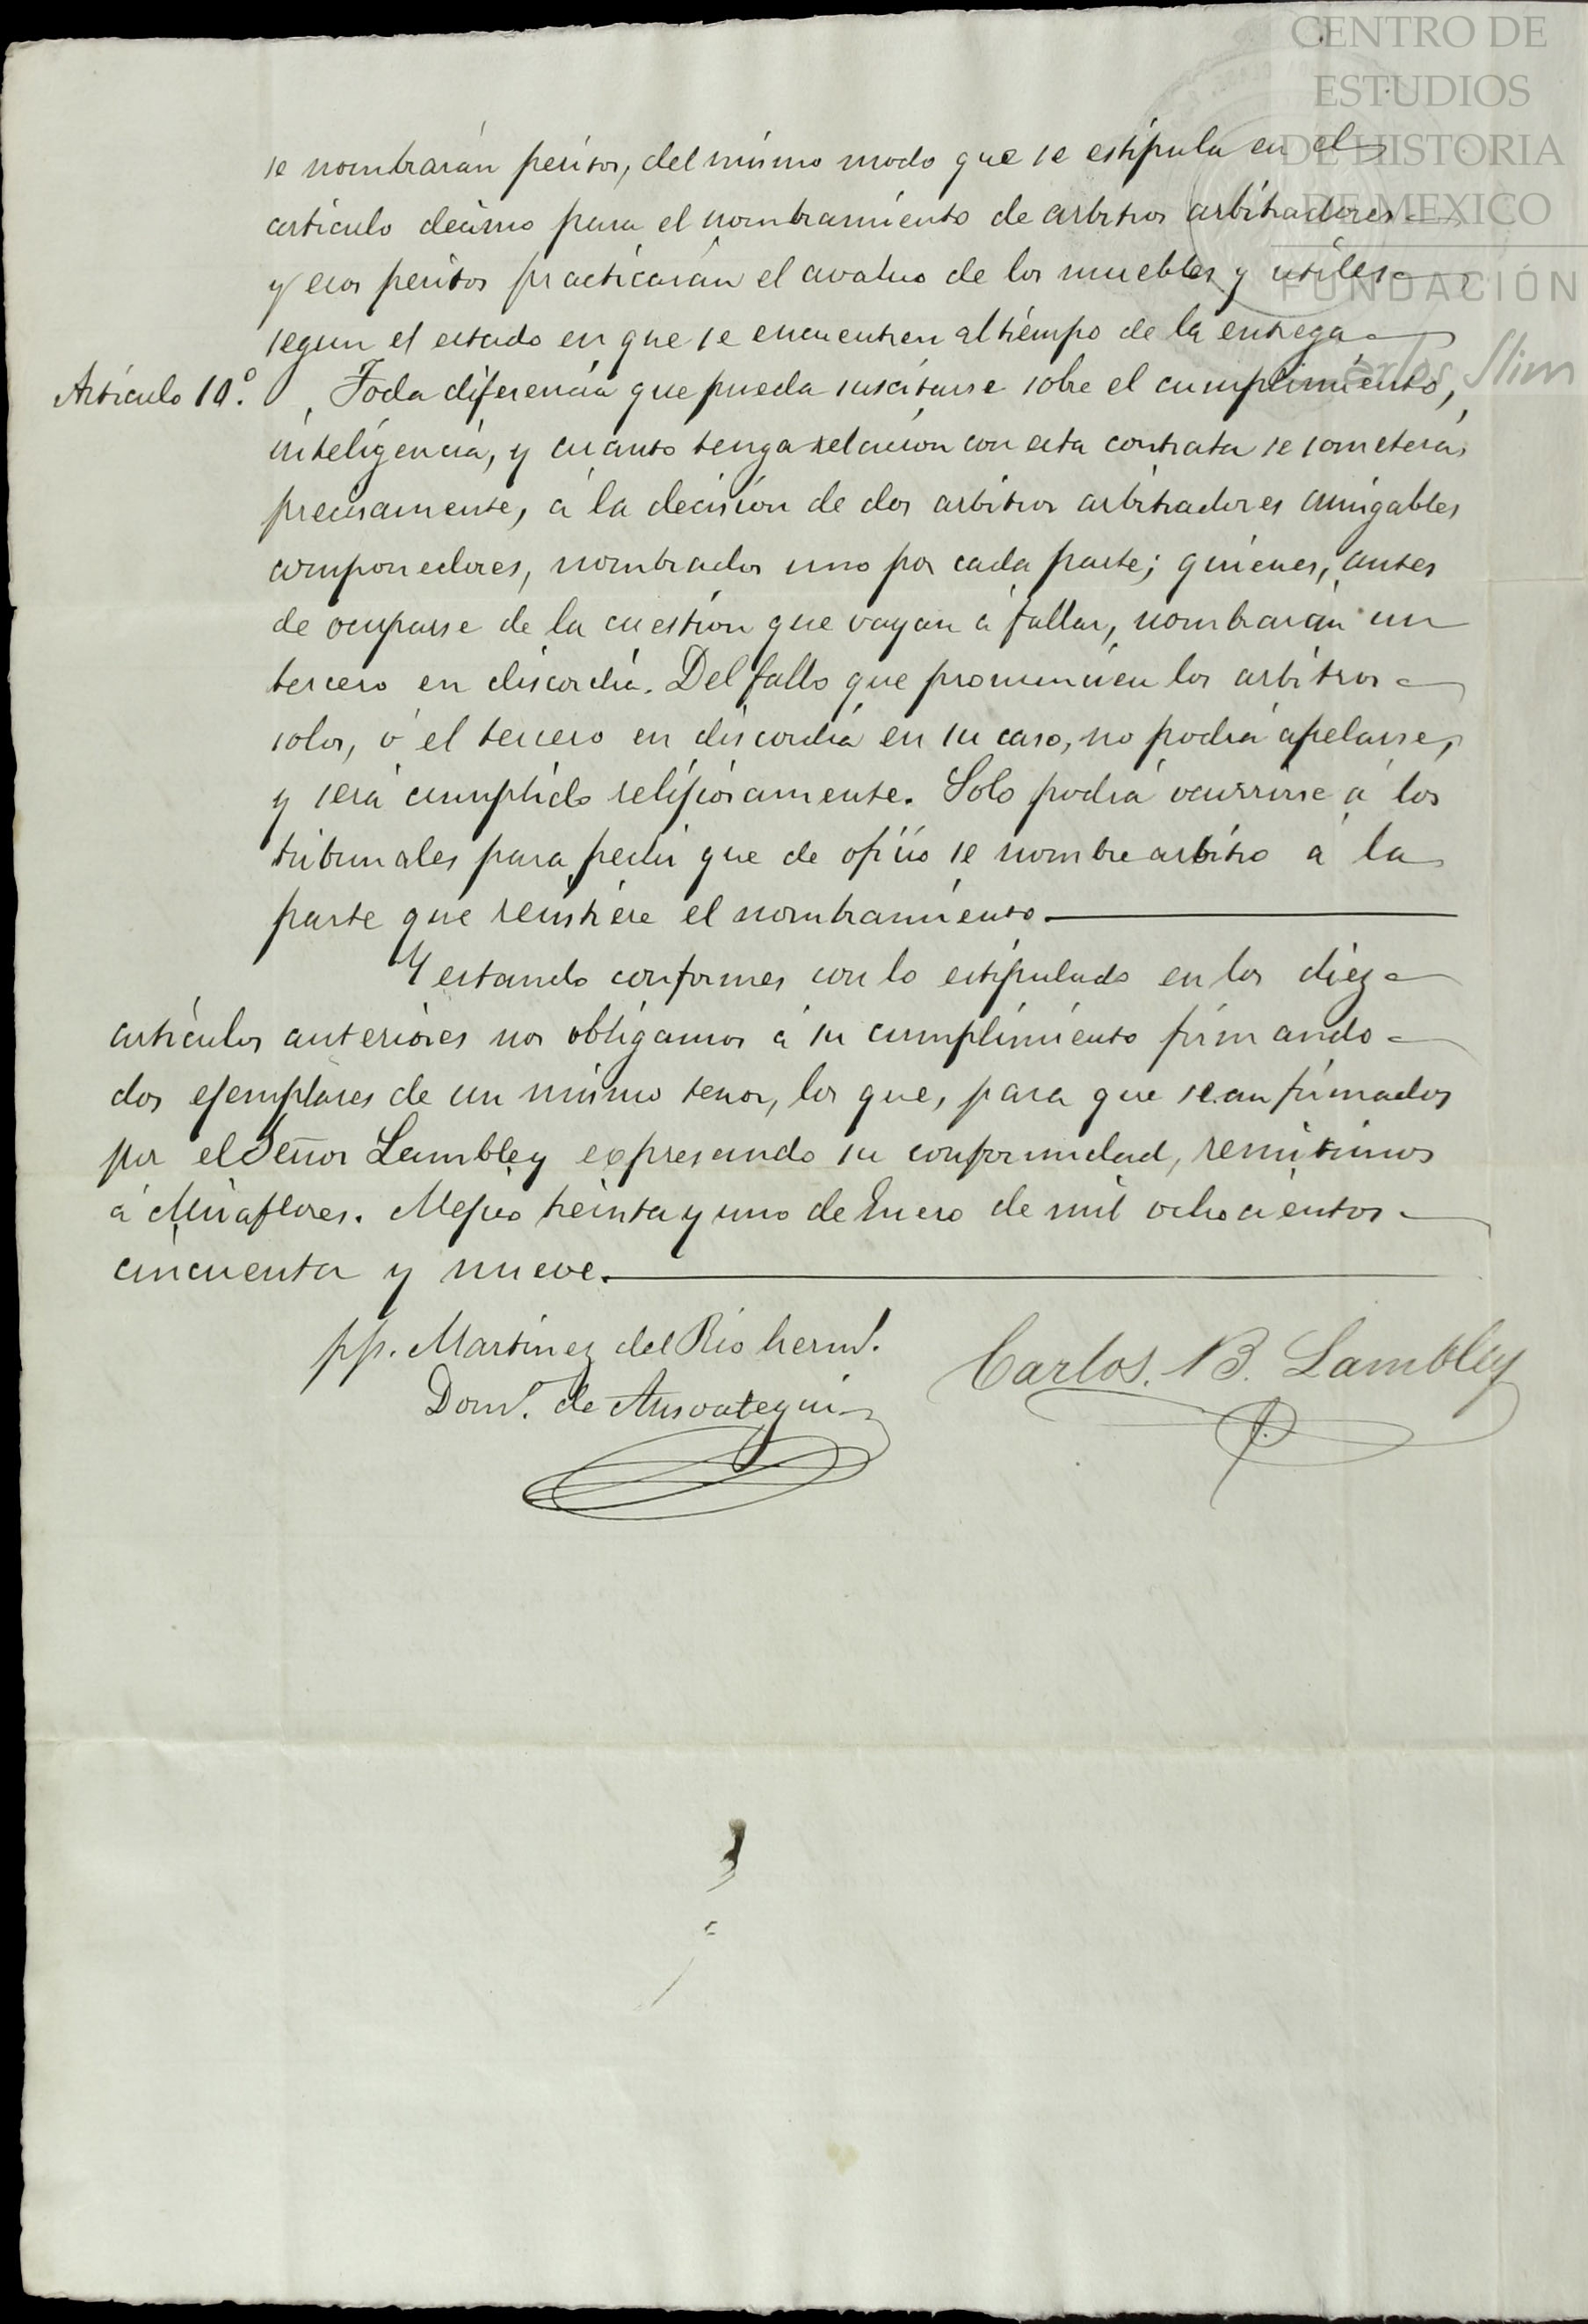 CENTRO DE
ESTUDIOS
DE HISTORIA
DE MEXICO
FUNDACIÓN
Carlos Slim
se nombrarán peritos, del mismo modo que se estipula en el
artículo decimo para el nombramiento de arbitros arbitradores
y esos peritos practicarán el avaluo de los muebles y utiles
segun el estado en que se encuentren al tiempo de la entrega
Artículo 10.º Toda diferencia que pueda suscitarse sobre el cumplimiento,
inteligencia, y cuanto tenga relacion con esta contrata se someterá,
precisamente, á la decision de dos arbitros arbitradores amigables
componedores, nombrados uno por cada parte; quienes, antes
de ocuparse de la cuestion que vayan á fallar, nombrarán un
tercero en discordia. Del fallo que pronuncien los arbitros
solos, ó el tercero en discordia en su caso, no podrá apelarse,
y será cumplido religiosamente. Solo podrá ocurrirse á los
tribunales para pedir que de oficio se nombre arbitro á la
parte que resistiere el nombramiento.
Y estando conformes con lo estipulado en los diez
artículos anteriores nos obligamos á su cumplimiento firmando
dos ejemplares de un mismo tenor, los que, para que sean firmados
por el Señor Lambley expresando su conformidad, remitimos
á Miraflores. Mejico treinta y uno de Enero de mil ochocientos
cincuenta y nueve.
pp. Martinez del Rio herms.
Domo. de Ansoategui
Carlos. B. Lambley